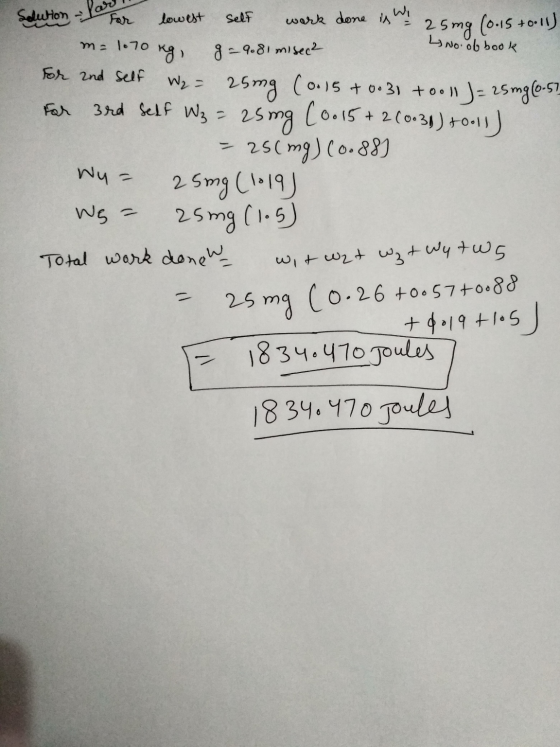 Solution :- Par
For lowest self work done is W1 = 25mg (0.15 + 0.11)
↳ No. ob book
m = 1.70 kg, g = 9.81 m/sec2
For 2nd self W2 = 25mg (0.15 + 0.31 + 0.11) = 25mg(0.57
For 3rd self W3 = 25mg (0.15 + 2(0.31) + 0.11)
= 25(mg) (0.88)
W4 = 25mg (1.19)
W5 = 25mg (1.5)
Total work done W = W1 + W2 + W3 + W4 + W5
= 25 mg ( 0.26 + 0.57 + 0.88
+ 1.19 + 1.5)
= 1834.470 Joules
1834.470 Joules